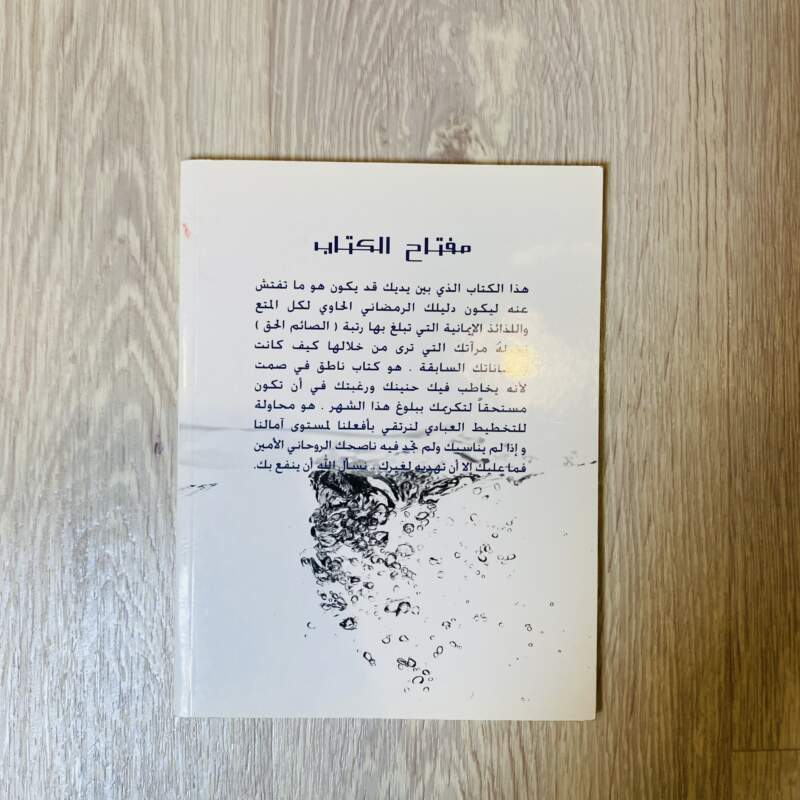 مفتاح الكتاب
هذا الكتاب الذي بين يديك قد يكون هو ما تفتش
عنه ليكون دليلك الرمضاني الحاوي لكل المتع
واللذائذ الإيمانية التي تبلغ بها رتبة ( الصائم الحق )
مرآتك التي ترى من خلالها كيف كانت
السابقة . هو كتاب ناطق في صمت
لأنه يخاطب فيك حنينك ورغبتك في أن تكون
مستحقاً لتكريمك ببلوغ هذا الشهر . هو محاولة
للتخطيط العبادي لنرتقي بأفعلنا لمستوى آمالنا
و إذا لم يناسبك ولم تجد فيه ناصحك الروحاني الأمين
فما عليك إلا أن تهديه لغيرك . نسأل الله أن ينفع بك.